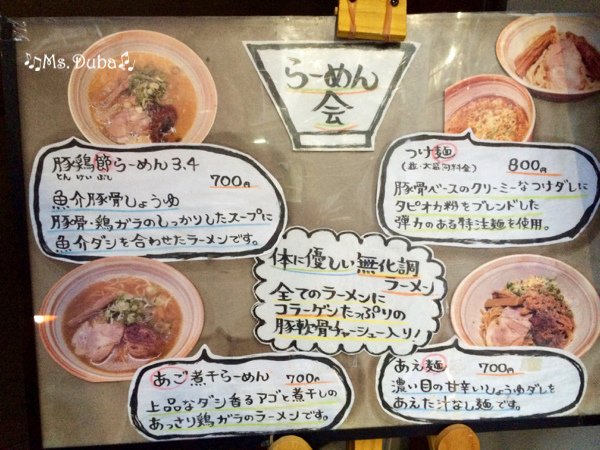 ♫Ms.Duba♫
らーめん
会
豚鶏節らーめん3.4
とんけいぶし
700円
魚介豚骨しょうゆ
豚骨・鶏ガラのしっかりしたスープに
魚介ダシを合わせたラーメンです。
つけ麺
800円
豚骨ベースのクリーミーなつけダレに
タピオカ粉をブレンドした
弾力のある特注麺を使用。
体に優しい無化調
ラーメン
全てのラーメンに
コラーゲンたっぷりの
豚軟骨チャーシュー入り!
あご煮干らーめん 700円
上品なダシ香るアゴと煮干しの
あっさり鶏ガラのラーメンです。
あえ麺 700円
濃い目の甘辛いしょうゆダレを
あえた汁なし麺です。